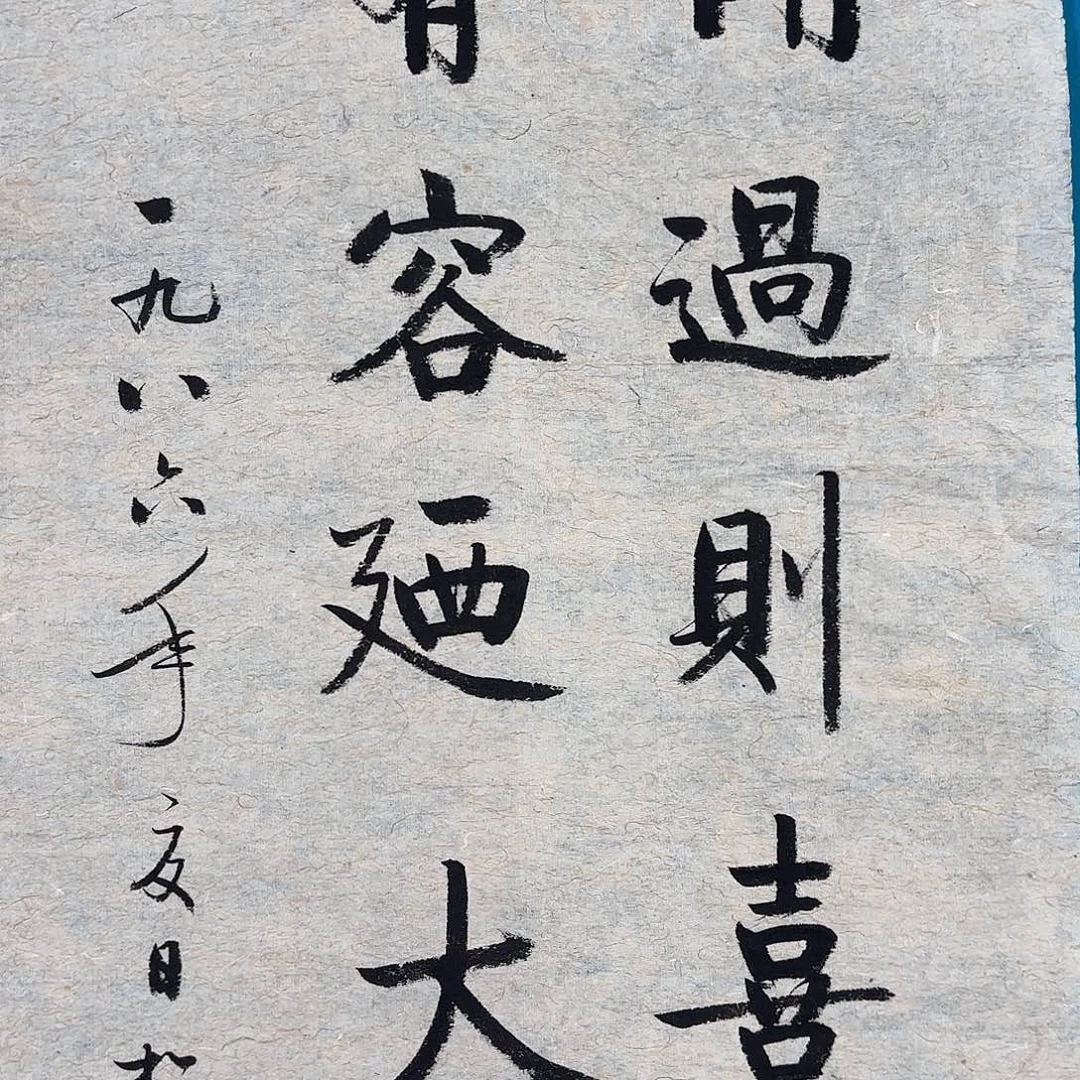 過則喜
有容廼大
一九八六年夏日